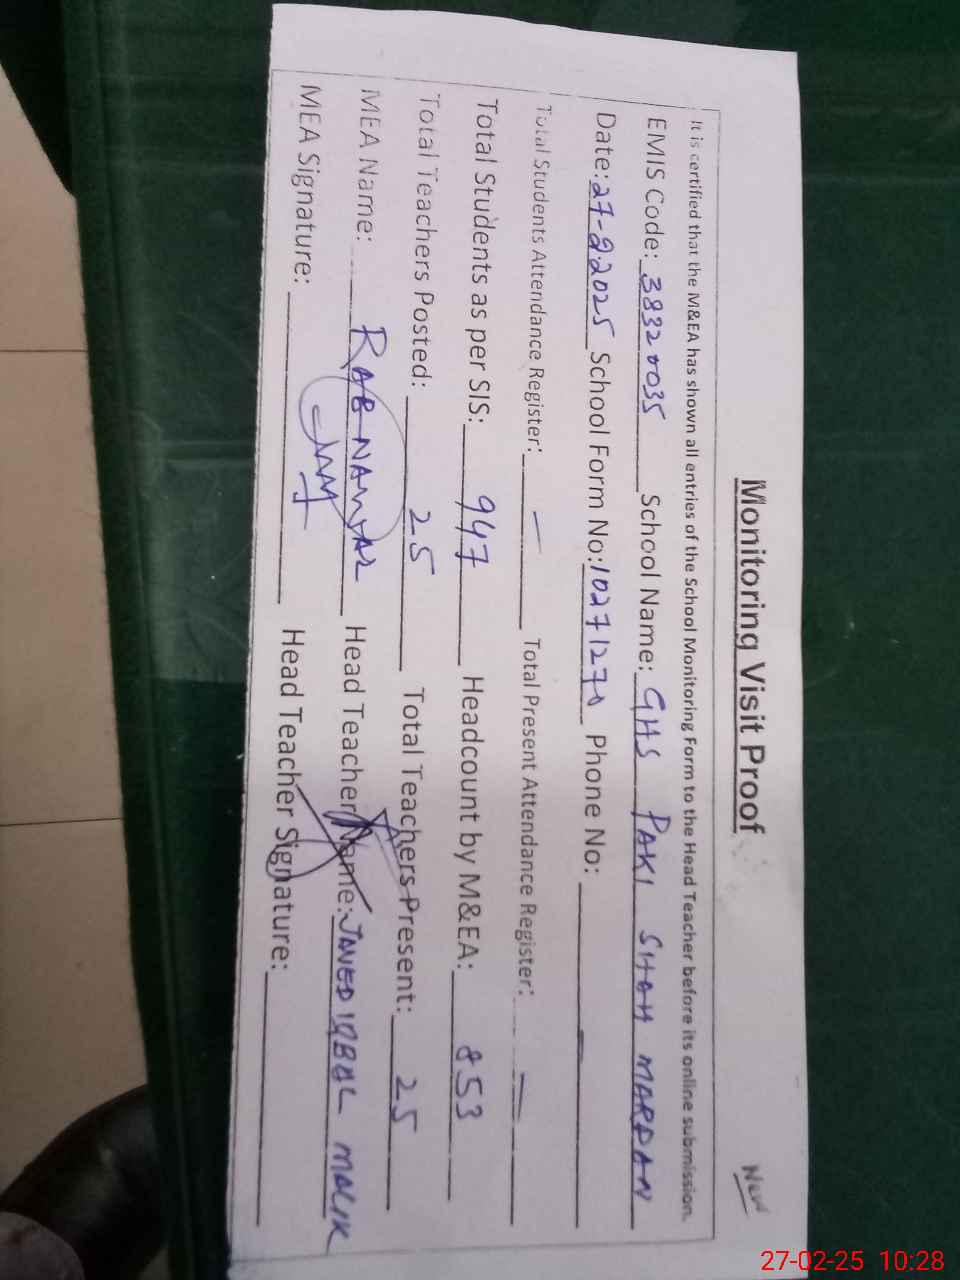 New
Monitoring Visit Proof
It is certified that the M&EA has shown all entries of the School Monitoring Form to the Head Teacher before its online submission.
EMIS Code: 38320035 School Name: GHS PAKI SHAH MARDAN
Date: 27-2-2025 School Form No: 10271270 Phone No: —
Total Students Attendance Register: — Total Present Attendance Register: —
Total Students as per SIS: 947 Headcount by M&EA: 853
Total Teachers Posted: 25 Total Teachers Present: 25
MEA Name: RAB NAWAZ Head Teacher Name: JAVED IQBAL MALIK
MEA Signature: Head Teacher Signature:
27-02-25 10:28